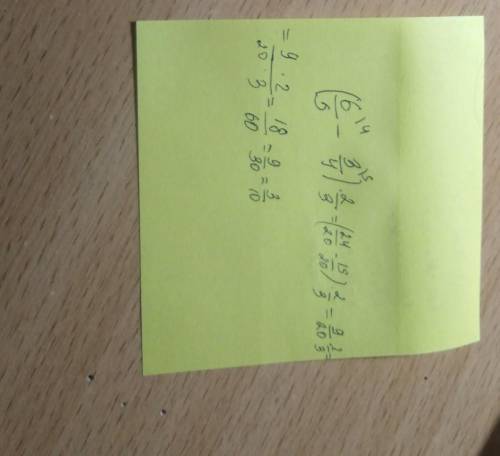 (6/5 \4 − 3/4 \5) · 2/3 = (24/20 − 15/20) · 2/3 = 9/20 · 2/3 =
= 9 · 2/20 · 3 = 18/60 = 9/30 = 3/10